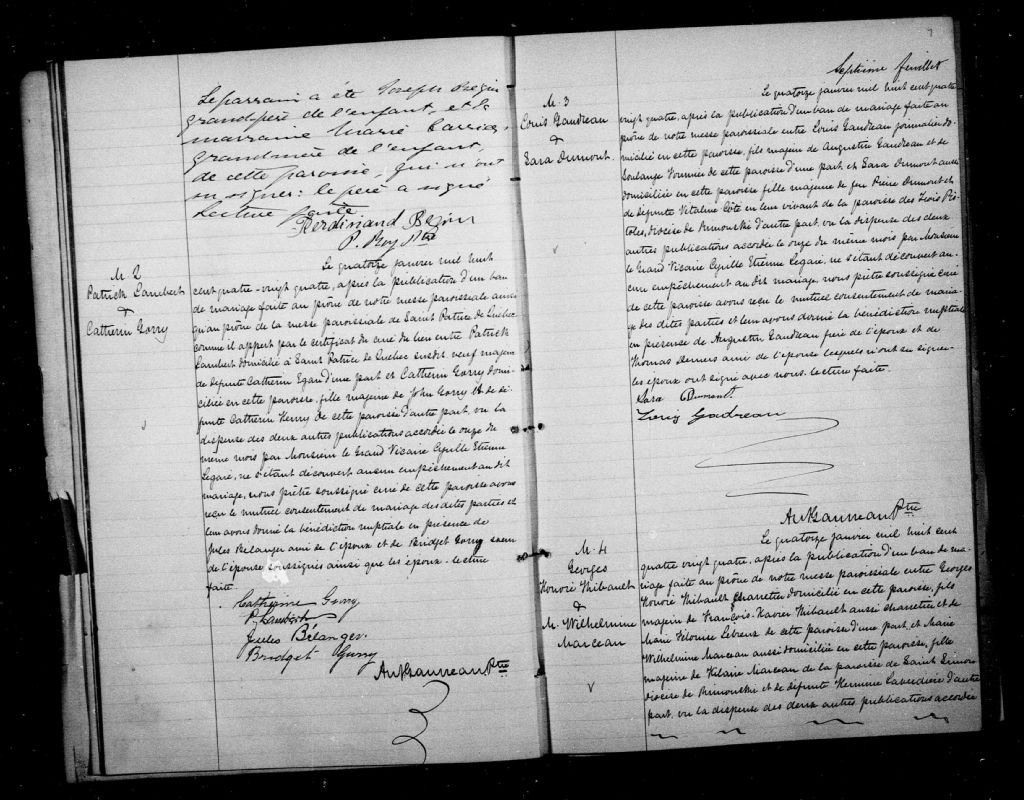 Le parrain a été Joseph Bégin
grand père de l'enfant, et la
marraine Marie Carrier,
grandmère de l'enfant,
de cette paroisse, qui n'ont
su signer: le père a signé
Lecture faite
Ferdinand Begin
P. Roy Ptre
M. 2
Patrick Lambert
&
Catherin Gorry
Le quatorze janvier mil huit
cent quatre-vingt quatre, après la publication d'un ban
de mariage faite au prône de notre messe paroissiale ainsi
qu'au prône de la messe paroissiale de Saint Patrice de Québec
comme il appert par le certificat du curé du lieu entre Patrick
Lambert domicilié à Saint Patrice de Québec susdit veuf majeur
de défunte Catherin Egan d'une part et Catherin Gorry domi-
ciliée en cette paroisse, fille majeure de John Gorry & de dé-
funte Catherin Henry de cette paroisse d'autre part, vu la
dispense des deux autres publications accordée le onze du
même mois par Monsieur le Grand Vicaire Cyrille Etienne
Legaré, ne s'étant découvert aucun empêchement au dit
mariage, nous prêtre soussigné curé de cette paroisse avons
reçu le mutuel consentement de mariage des dites parties et
leur avons donné la bénédiction nuptiale en présence de
Jules Bélanger ami de l'époux et de Bridget Gorry sœur
de l'épouse soussignés ainsi que les époux. lecture
faite.
Catherine Gorry
P. Lambert
Jules Bélanger.
Bridget Gorry
Ptre
7
Septième feuillet
M. 3
Louis Gaudreau
&
Sara Dumont.
Le quatorze janvier mil huit cent quatre
vingt quatre, après la publication d'un ban de mariage faite au
prône de notre messe paroissiale entre Louis Gaudreau journalier do-
micilié en cette paroisse, fils majeur de Augustin Gaudreau et de
Soulange Fournier de cette paroisse d'une part, et Sara Dumont aussi
domiciliée en cette paroisse fille majeure de feu Pierre Dumont et
de défunte Vitaline Côté en leur vivant de la paroisse des Trois Pis-
toles, diocèse de Rimouski d'autre part, vu la dispense des deux
autres publications accordée le onze du même mois par Monsieur
le Grand Vicaire Cyrille Etienne Legaré, ne s'étant découvert au-
cun empêchement au dit mariage, nous prêtre soussigné curé
de cette paroisse avons reçu le mutuel consentement de maria-
ge des dites parties et leur avons donné la bénédiction nuptiale
en présence de Augustin Gaudreau frère de l'époux et de
Thomas Demers ami de l'épouse lesquels n'ont su signer
les époux ont signé avec nous. lecture faite.
Sara Dumont
Louis Godreau
Ptre
M. 4
Georges
Honoré Thibault
&
M. Wilhelmine
Marceau
Le quatorze janvier mil huit cent
quatre vingt quatre, après la publication d'un ban de ma-
riage faite au prône de notre messe paroissiale entre Georges
Honoré Thibault charretier domicilié en cette paroisse, fils
majeur de François-Xavier Thibault aussi charretier et de
Marie Filomne Lebreux de cette paroisse d'une part, et Marie
Wilhelmine Marceau aussi domiciliée en cette paroisse, fille
majeure de Hilaire Marceau de la paroisse de Saint Simon
diocèse de Rimouski et de défunte Hermine Laverdière d'autre
part, vu la dispense des deux autres publications accordée